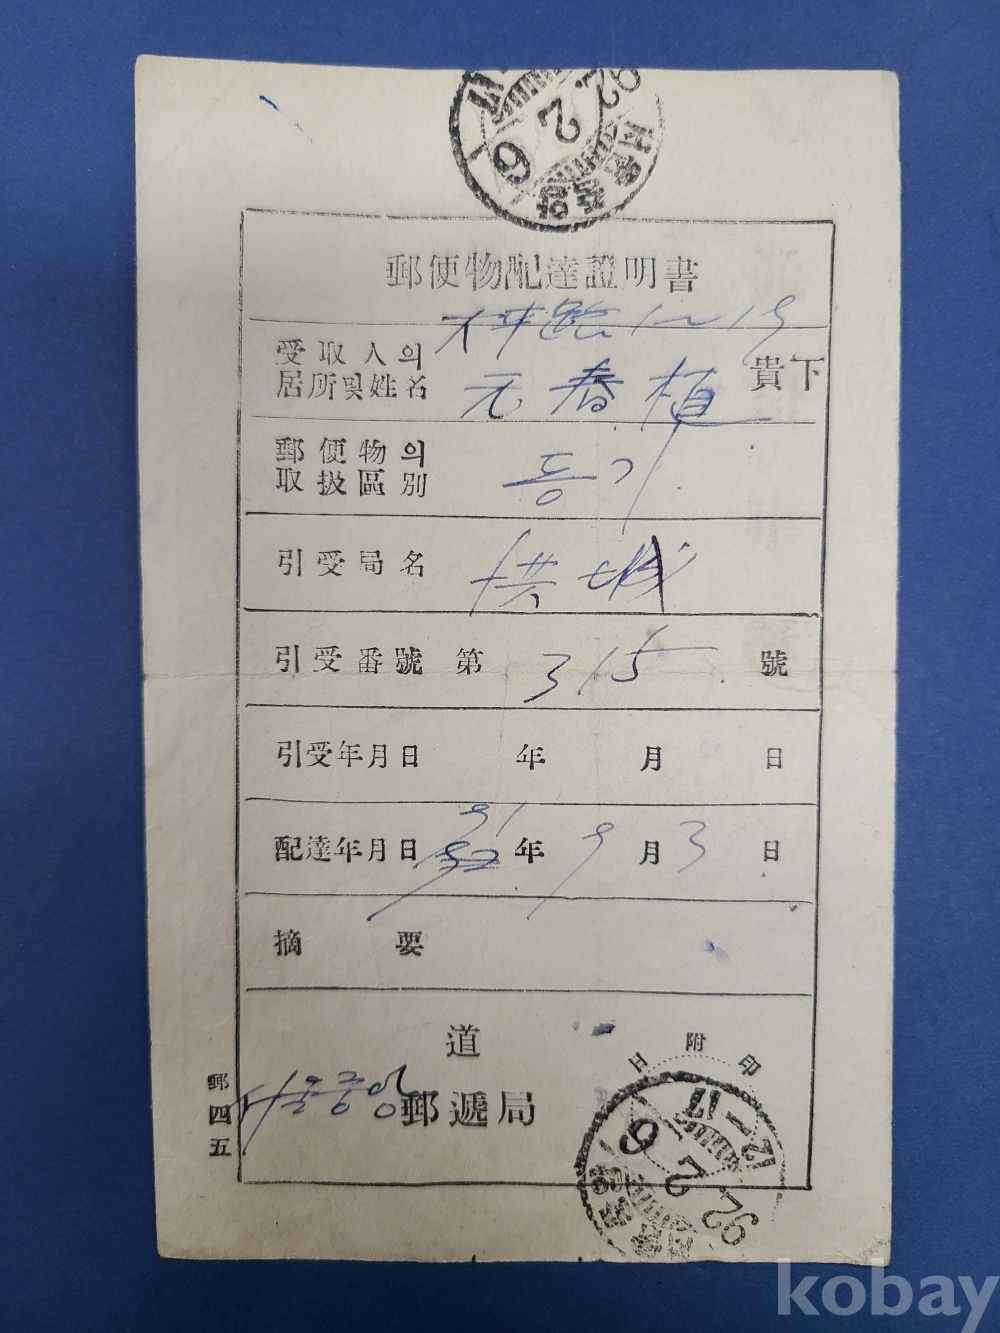 92. 2. 6
서울중앙
郵便物配達證明書
受取人의
居所및姓名
元 春 植
貴下
郵便物의
取扱區別
등기
引受局名
洪城
引受番號 第 315 號
引受年月日 年 月 日
配達年月日 91 年 9 月 3 日
摘 要
道
서울중앙 郵遞局
日附印
郵四五
92. 2. 6
서울중앙
kobay